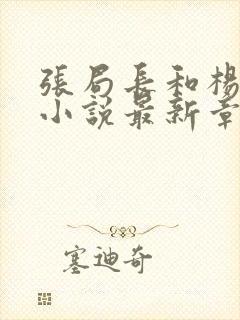 張局長和楊
小說最新章
塞迪奇